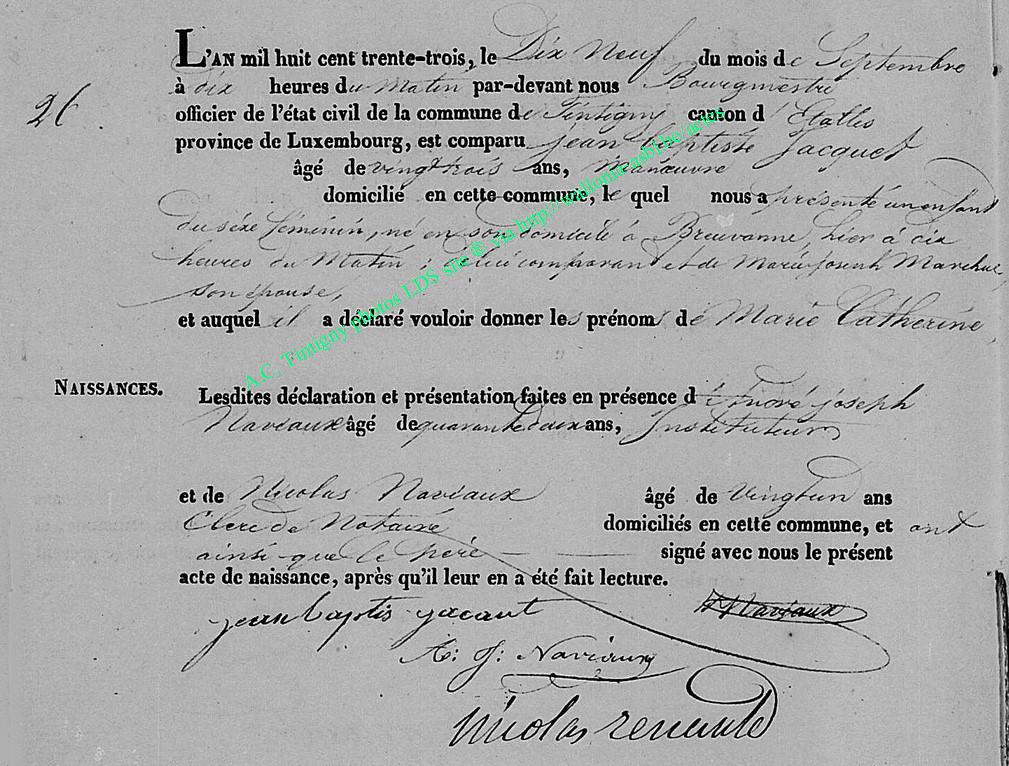 L'AN mil huit cent trente-trois, le Dix Neuf du mois de Septembre
à dix heures du Matin par-devant nous Bourgmestre
26.
officier de l'état civil de la commune de Tintigny canton d'Etalle
province de Luxembourg, est comparu jean baptiste Jacquet
âgé de vingt trois ans, Manœuvre
domicilié en cette commune, le quel nous a présenté un enfant
du séxe féminin, né en son domicile a Breuvanne, hier à dix
heures du Matin, de lui comparant et de Marie joseph
son épouse,
et auquel il a déclaré vouloir donner les prénoms de Marie Catherine,
NAISSANCES.
Lesdites déclaration et présentation faites en présence d'André joseph
Naviaux âgé de quarante deux ans, Instituteur
et de Nicolas Naviaux âgé de vingt un ans
Clerc de Notaire domiciliés en cette commune, et ont
ainsi que le père signé avec nous le présent
acte de naissance, après qu'il leur en a été fait lecture.
jean baptis jacant Naviaux
A: J: Naviaux
nicolas renauld
A.C. Tintigny photos LDS site © via http://wallonia-asbl.be/actes